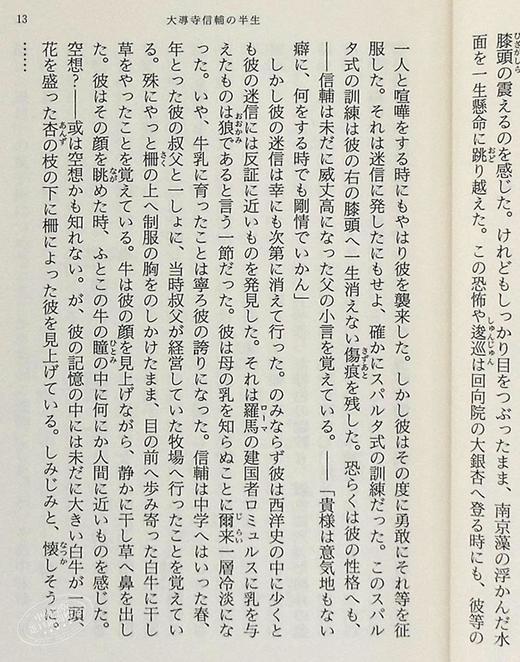 膝頭の震えるのを感じた。けれどもしっかり目をつぶったまま、南京藻の浮かんだ水
面を一生懸命に跳り越えた。この恐怖や逡巡は回向院の大銀杏へ登る時にも、彼等の
13
大導寺信輔の半生
一人と喧嘩をする時にもやはり彼を襲来した。しかし彼はその度に勇敢にそれ等を征
服した。それは迷信に発したにもせよ、確かにスパルタ式の訓練だった。このスパル
タ式の訓練は彼の右の膝頭へ一生消えない傷痕を残した。恐らくは彼の性格へも、
――信輔は未だに威丈高になった父の小言を覚えている。――「貴様は意気地もない
癖に、何をする時でも剛情でいかん」
しかし彼の迷信は幸にも次第に消えて行った。のみならず彼は西洋史の中に少くと
も彼の迷信には反証に近いものを発見した。それは羅馬の建国者ロミュルスに乳を与
えたものは狼であると言う一節だった。彼は母の乳を知らぬことに爾来一層冷淡にな
った。いや、牛乳に育ったことは寧ろ彼の誇りになった。信輔は中学へはいった春、
年とった彼の叔父と一しょに、当時叔父が経営していた牧場へ行ったことを覚えてい
る。殊にやっと柵の上へ制服の胸をのしかけたまま、目の前へ歩み寄った白牛に干し
草をやったことを覚えている。牛は彼の顔を見上げながら、静かに干し草へ鼻を出し
た。彼はその顔を眺めた時、ふとこの牛の瞳の中に何にか人間に近いものを感じた。
空想?――或は空想かも知れない。が、彼の記憶の中には未だに大きい白牛が一頭、
花を盛った杏の枝の下に柵によった彼を見上げている。しみじみと、懐しそうに。
……